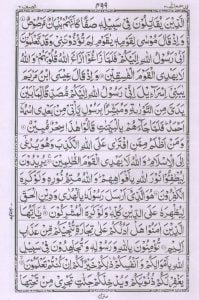 ۴۹۹
الَّذِيْنَ يُقَاتِلُوْنَ فِيْ سَبِيْلِهٖ صَفًّا كَاَنَّهُمْ بُنْيَانٌ مَّرْصُوْصٌ
وَاِذْ قَالَ مُوْسٰى لِقَوْمِهٖ يٰقَوْمِ لِمَ تُؤْذُوْنَنِيْ وَقَدْ تَّعْلَمُوْنَ
اَنِّيْ رَسُوْلُ اللّٰهِ اِلَيْكُمْ فَلَمَّا زَاغُوْا اَزَاغَ اللّٰهُ قُلُوْبَهُمْ وَاللّٰهُ
لَا يَهْدِي الْقَوْمَ الْفٰسِقِيْنَ وَاِذْ قَالَ عِيْسَى ابْنُ مَرْيَمَ
يٰبَنِيْ اِسْرَآءِيْلَ اِنِّيْ رَسُوْلُ اللّٰهِ اِلَيْكُمْ مُّصَدِّقًا لِّمَا بَيْنَ
يَدَيَّ مِنَ التَّوْرٰىةِ وَمُبَشِّرًا بِرَسُوْلٍ يَّاْتِيْ مِنْ بَعْدِي اسْمُهٗ
اَحْمَدُ فَلَمَّا جَآءَهُمْ بِالْبَيِّنٰتِ قَالُوْا هٰذَا سِحْرٌ مُّبِيْنٌ
وَمَنْ اَظْلَمُ مِمَّنِ افْتَرٰى عَلَى اللّٰهِ الْكَذِبَ وَهُوَ يُدْعٰى
اِلَى الْاِسْلَامِ وَاللّٰهُ لَا يَهْدِي الْقَوْمَ الظّٰلِمِيْنَ يُرِيْدُوْنَ
لِيُطْفِـُٔوْا نُوْرَ اللّٰهِ بِاَفْوَاهِهِمْ وَاللّٰهُ مُتِمُّ نُوْرِهٖ وَلَوْ كَرِهَ
الْكٰفِرُوْنَ هُوَ الَّذِيْ اَرْسَلَ رَسُوْلَهٗ بِالْهُدٰى وَدِيْنِ الْحَقِّ
لِيُظْهِرَهٗ عَلَى الدِّيْنِ كُلِّهٖ وَلَوْ كَرِهَ الْمُشْرِكُوْنَ يٰٓاَيُّهَا
الَّذِيْنَ اٰمَنُوْا هَلْ اَدُلُّكُمْ عَلٰى تِجَارَةٍ تُنْجِيْكُمْ مِّنْ عَذَابٍ
اَلِيْمٍ تُؤْمِنُوْنَ بِاللّٰهِ وَرَسُوْلِهٖ وَتُجَاهِدُوْنَ فِيْ سَبِيْلِ
اللّٰهِ بِاَمْوَالِكُمْ وَاَنْفُسِكُمْ ذٰلِكُمْ خَيْرٌ لَّكُمْ اِنْ كُنْتُمْ تَعْلَمُوْنَ
يَغْفِرْ لَكُمْ ذُنُوْبَكُمْ وَيُدْخِلْكُمْ جَنّٰتٍ تَجْرِيْ مِنْ تَحْتِهَا